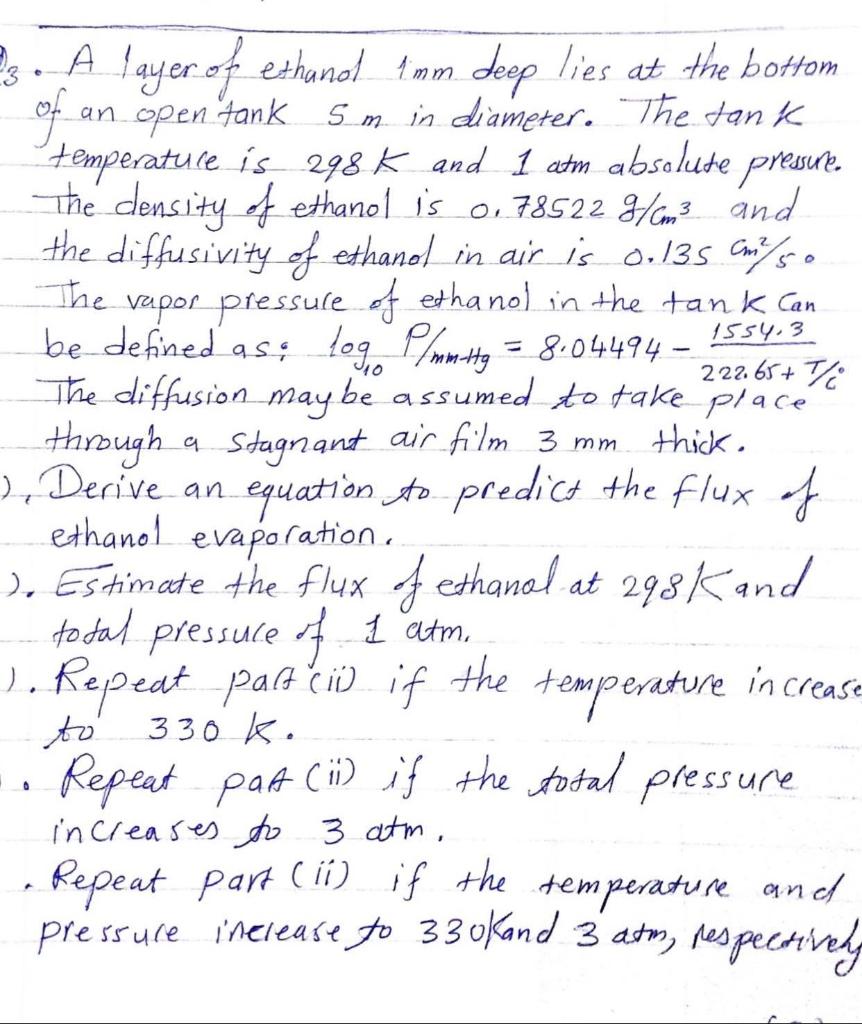 3. A layer of ethanol 1mm deep lies at the bottom
of an open tank 5 m in diameter. The tank
temperature is 298 K and 1 atm absolute pressure.
The density of ethanol is 0.78522 g/cm³ and
the diffusivity of ethanol in air is 0.135 cm²/s.
The vapor pressure of ethanol in the tank can
be defined as: log₁₀ P/mm-Hg = 8.04494 - 1554.3 / 222.65 + T/c
The diffusion may be assumed to take place
through a stagnant air film 3 mm thick.
), Derive an equation to predict the flux of
ethanol evaporation.
). Estimate the flux of ethanol at 298K and
total pressure of 1 atm.
). Repeat part (ii) if the temperature increase
to 330 K.
. Repeat part (ii) if the total pressure
increases to 3 atm.
. Repeat part (ii) if the temperature and
pressure increase to 330K and 3 atm, respectively